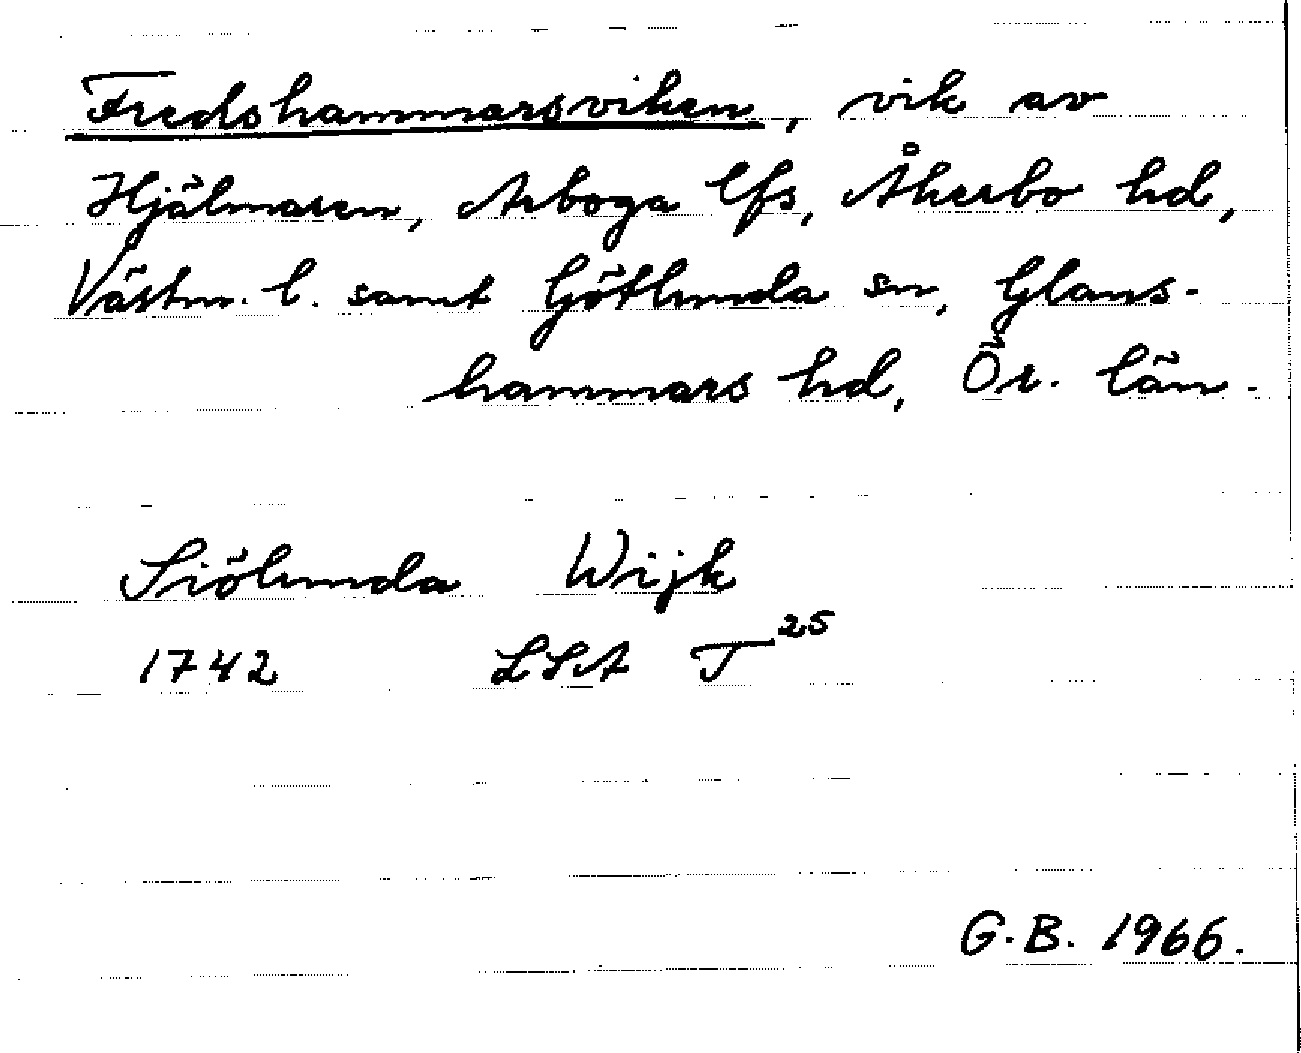 Fredshammarsviken, vik av
Hjälmaren, Arboga lfs, Åkerbo hd,
Västm. l. samt Götlunda sn, Glans-
hammars hd, Ör. län.
Siölunda Wijk
1742 LSA T25
G.B. 1966.